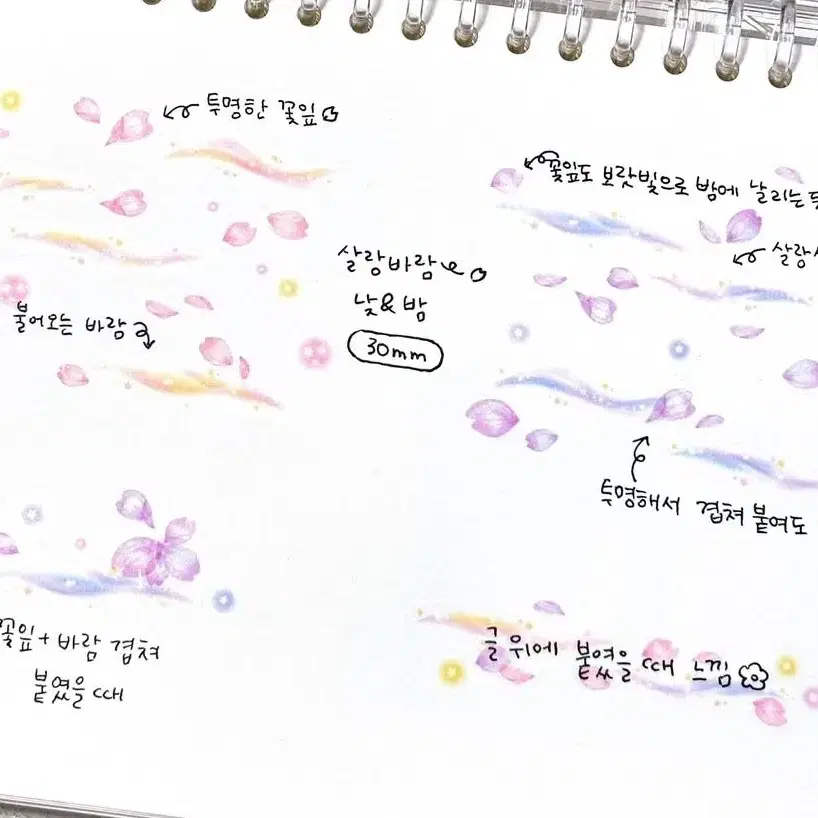 투명한 꽃잎
불어오는 바람
살랑바람
낮&밤
30mm
꽃잎도 보랏빛으로 밤에 날리는
살랑
투명해서 겹쳐 붙여도
꽃잎+바람 겹쳐
붙였을 때
글 위에 붙였을 때 느낌